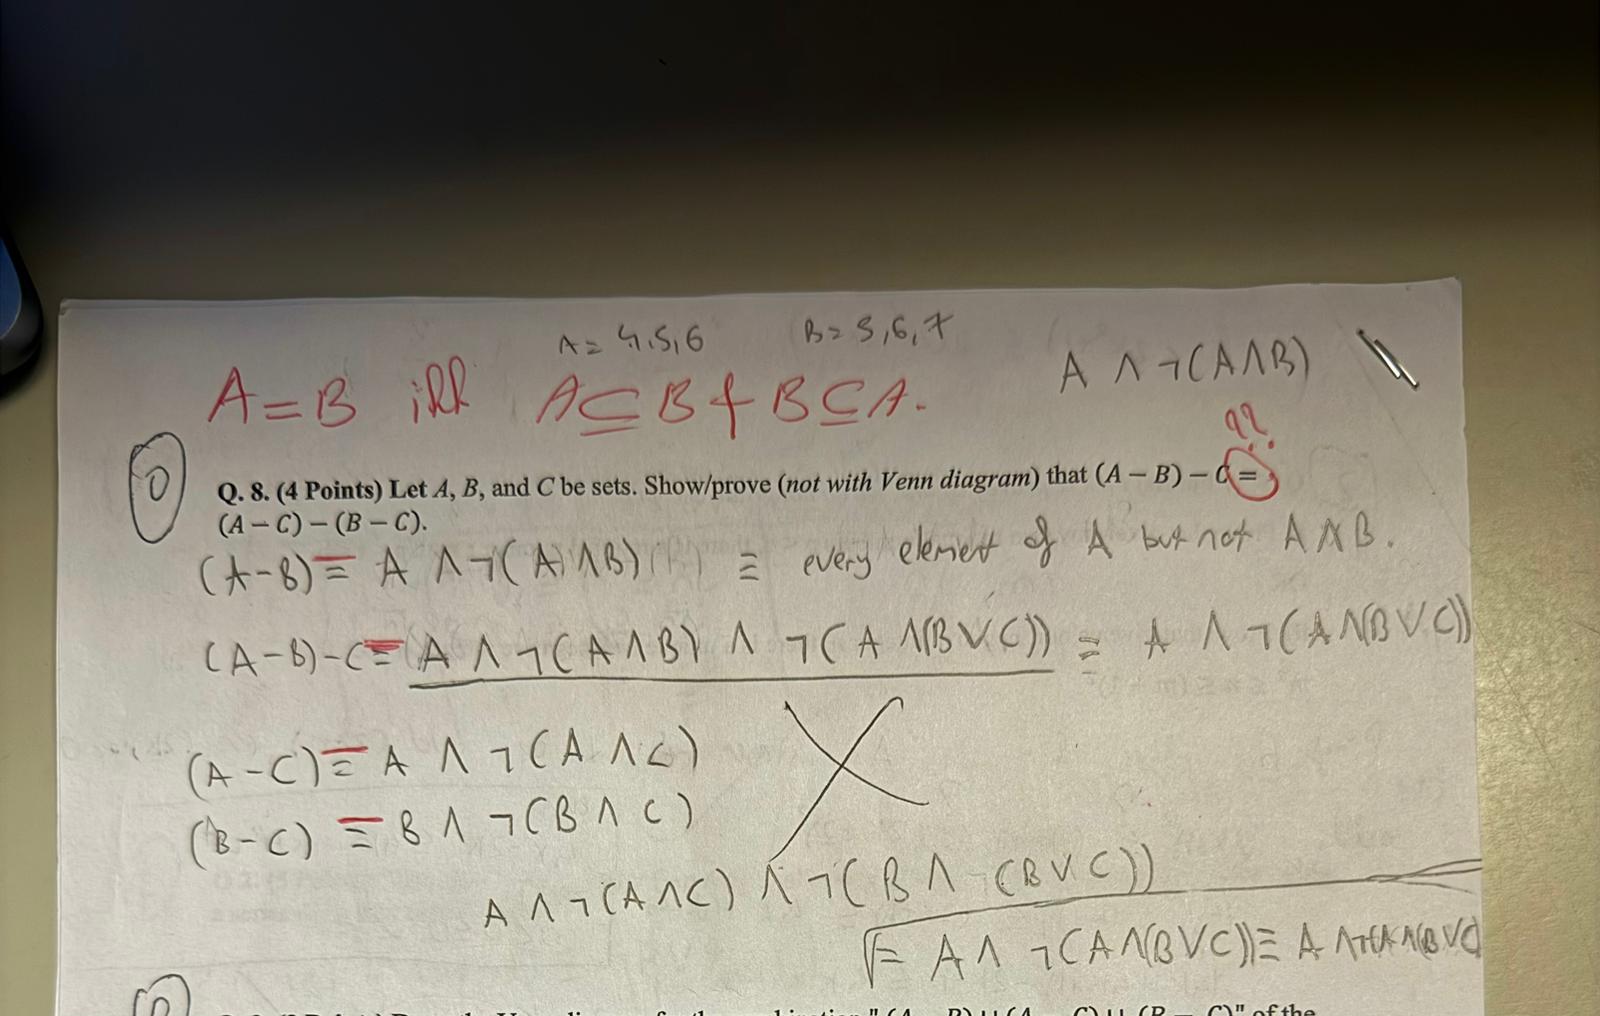 A = 4,5,6 B = 5,6,7
A ∧ ¬(A∧B)
A = B iff A ⊆ B & B ⊆ A.
??
0
Q. 8. (4 Points) Let A, B, and C be sets. Show/prove (not with Venn diagram) that (A – B) – C =
(A – C) – (B – C).
(A-B) ≡ A ∧ ¬(A ∧ B) ≡ every element of A but not A ∧ B.
(A-B)-C ≡ A ∧ ¬(A ∧ B) ∧ ¬(A ∧(B ∨ C)) ≡ A ∧ ¬(A ∧(B ∨ C))
(A-C) ≡ A ∧ ¬(A ∧ C)
(B-C) ≡ B ∧ ¬(B ∧ C)
A ∧ ¬(A ∧ C) ∧ ¬(B ∧ (B ∨ C))
≡ A ∧ ¬(A ∧(B ∨ C)) ≡ A ∧ ¬(A ∧(B ∨ C